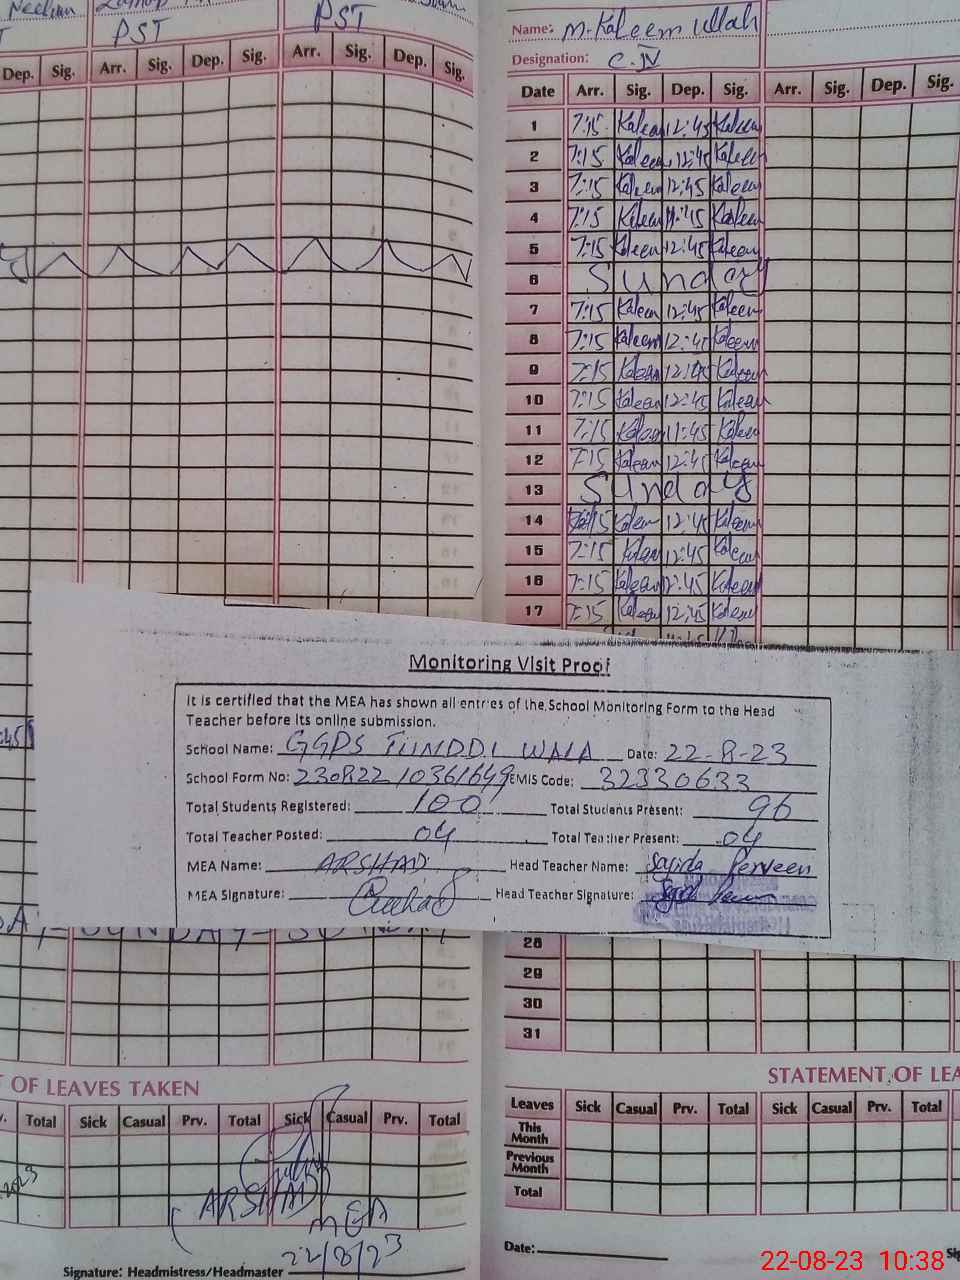 PST PST
Dep. Sig. Arr. Sig. Dep. Sig. Arr. Sig. Dep. Sig.
Name: M. Kaleem ullah
Designation: C.IV
Date Arr. Sig. Dep. Sig. Arr. Sig. Dep. Sig.
1 7:15 Kaleem 12:45 Kaleem
2 7:15 Kaleem 12:45 Kaleem
3 7:15 Kaleem 12:45 Kaleem
4 7:15 Kaleem Kaleem
5 7:15 Kaleem 12:45 Kaleem
6 Sunday
7 7:15 Kaleem 12:45 Kaleem
8 7:15 Kaleem 12:45 Kaleem
9 7:15 Kaleem 12:45 Kaleem
10 7:15 Kaleem 12:45 Kaleem
11 7:15 Kaleem 11:45 Kaleem
12 7:15 Kaleem 12:45 Kaleem
13 Sunday
14 7:15 Kaleem 12:45 Kaleem
15 7:15 Kaleem 12:45 Kaleem
16 7:15 Kaleem 12:45 Kaleem
17 7:15 Kaleem 12:45 Kaleem
Monitoring Visit Proof
It is certified that the MEA has shown all entries of the School Monitoring Form to the Head
Teacher before its online submission.
School Name: GGPS TUNDDI WALA Date: 22-8-23
School Form No: 230822 10361649 EMIS Code: 32330633
Total Students Registered: 100 Total Students Present: 96
Total Teacher Posted: 04 Total Teacher Present: 04
MEA Name: ARSHAD Head Teacher Name: Sajida Perveen
MEA Signature: Head Teacher Signature:
SUNDAY
28
29
30
31
T OF LEAVES TAKEN
v. Total Sick Casual Prv. Total Sick Casual Prv. Total
(ARSHAD)
MEA
22/8/23
Signature: Headmistress/Headmaster
STATEMENT OF LEA
Leaves Sick Casual Prv. Total Sick Casual Prv. Total
This Month
Previous Month
Total
Date:
22-08-23 10:38